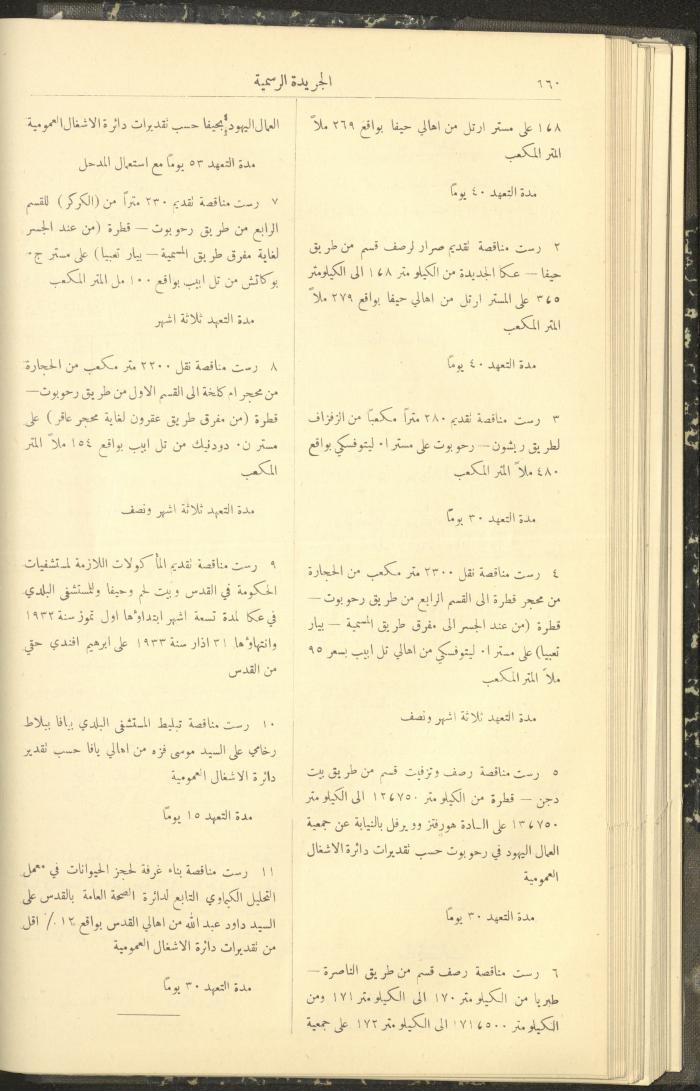 ٦٦٠
الجريدة الرسمية
١٦٨ على مستر ارتل من اهالي حيفا بواقع ٢٦٩ ملاً
المتر المكعب
مدة التعهد ٤٠ يوماً
٢ رست مناقصة تقديم صرار لرصف قسم من طريق
حيفا — عكا الجديدة من الكيلو متر ١٦٨ الى الكيلومتر
٣٦٥ على المستر ارتل من اهالي حيفا بواقع ٢٧٩ ملاً
المتر المكعب
مدة التعهد ٤٠ يوماً
٣ رست مناقصة تقديم ٢٨٠ متراً مكعباً من الزفزاف
لطريق ريشون — رحوبوت على مستر ا٠ ليتوفسكي بواقع
٤٨٠ ملاً المتر المكعب
مدة التعهد ٣٠ يوماً
٤ رست مناقصة نقل ٢٣٠٠ متر مكعب من الحجارة
من محجر قطرة الى القسم الرابع من طريق رحوبوت —
قطرة (من عند الجسر الى مفرق طريق المسمية — بيار
تعبيا) على مستر ا٠ ليتوفسكي من اهالي تل ابيب بسعر ٩٥
ملاً المتر المكعب
مدة التعهد ثلاثة اشهر ونصف
٥ رست مناقصة رصف وتزفيت قسم من طريق بيت
دجن — قطرة من الكيلو متر ١٢٬٧٥٠ الى الكيلو متر
١٣٬٧٥٠ على السادة هورفتز وويرفل بالنيابة عن جمعية
العمال اليهود في رحوبوت حسب تقديرات دائرة الاشغال
العمومية
مدة التعهد ٣٠ يوماً
٦ رست مناقصة رصف قسم من طريق الناصرة —
طبريا من الكيلو متر ١٧٠ الى الكيلو متر ١٧١ ومن
الكيلو متر ١٧١٬٥٠٠ الى الكيلو متر ١٧٢ على جمعية
العمال اليهود بحيفا حسب تقديرات دائرة الاشغال العمومية
مدة التعهد ٥٣ يوماً مع استعمال المدحل
٧ رست مناقصة تقديم ٢٣٠ متراً من (الكركر) للقسم
الرابع من طريق رحوبوت — قطرة (من عند الجسر
لغاية مفرق طريق المسمية — بيار تعبيا) على مستر ج٠
بوكاتش من تل ابيب بواقع ١٠٠ مل المتر المكعب
مدة التعهد ثلاثة اشهر
٨ رست مناقصة نقل ٢٢٠٠ متر مكعب من الحجارة
من محجر ام كلخة الى القسم الاول من طريق رحوبوت —
قطرة (من مفرق طريق عقرون لغاية محجر عاقر) على
مستر ن٠ دودنيك من تل ابيب بواقع ١٥٤ ملاً المتر
المكعب
مدة التعهد ثلاثة اشهر ونصف
٩ رست مناقصة تقديم المأكولات اللازمة لمستشفيات
الحكومة في القدس وبيت لحم وحيفا وللمستشفى البلدي
في عكا لمدة تسعة اشهر ابتداؤها اول تموز سنة ١٩٣٢
وانتهاؤها ٣١ اذار سنة ١٩٣٣ على ابرهيم افندي حقي
من القدس
١٠ رست مناقصة تبليط المستشفى البلدي بيافا ببلاط
رخامي على السيد موسى فزه من اهالي يافا حسب تقدير
دائرة الاشغال العمومية
مدة التعهد ١٥ يوماً
١١ رست مناقصة بناء غرفة لحجز الحيوانات في معمل
التحليل الكيماوي التابع لدائرة الصحة العامة بالقدس على
السيد داود عبد الله من اهالي القدس بواقع ١٢ ٪ اقل
من تقديرات دائرة الاشغال العمومية
مدة التعهد ٣٠ يوماً